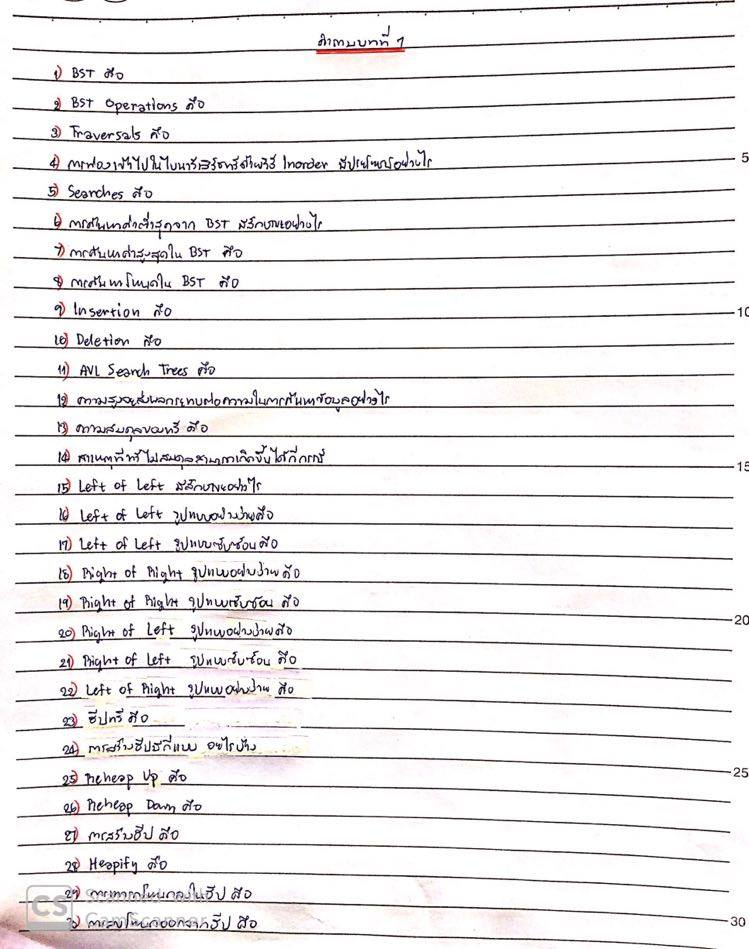 คำถามบทที่ 7
1) BST คือ
2) BST Operations คือ
3) Traversals คือ
4) การท่องเข้าไปในไบนารีเสิร์ชทรีด้วยวิธี Inorder มีประโยชน์อย่างไร
5) Searches คือ
6) การค้นหาค่าต่ำสุดจาก BST มีลักษณะอย่างไร
7) การค้นหาค่าสูงสุดใน BST คือ
8) การค้นหาโหนดใน BST คือ
9) Insertion คือ
10) Deletion คือ
11) AVL Search Trees คือ
12) ความสูงจะส่งผลกระทบต่อความในการค้นหาข้อมูลอย่างไร
13) ความสมดุลของทรี คือ
14) สาเหตุที่ทรีไม่สมดุลสามารถเกิดขึ้นได้กี่กรณี
15) Left of Left มีลักษณะอย่างไร
16) Left of Left รูปแบบอย่างง่ายคือ
17) Left of Left รูปแบบซับซ้อน คือ
18) Right of Right รูปแบบอย่างง่าย คือ
19) Right of Right รูปแบบซับซ้อน คือ
20) Right of Left รูปแบบอย่างง่าย คือ
21) Right of Left รูปแบบซับซ้อน คือ
22) Left of Right รูปแบบอย่างง่าย คือ
23) ฮีปทรี คือ
24) การสร้างฮีปมีกี่แบบ อะไรบ้าง
25) Reheap Up คือ
26) Reheap Down คือ
27) การสร้างฮีป คือ
28) Heapify คือ
29) การแทรกโหนดลงในฮีป คือ
30) การลบโหนดออกจากฮีป คือ
5
10
15
20
25
30
CS
CamScanner